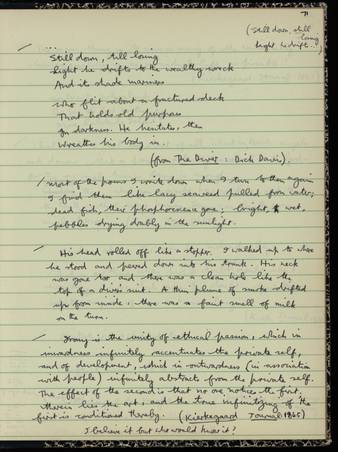 71
(Still down, still
losing
light he drifts...)
...
Still down, still losing
Light he drifts to the wealthy wreck
And its shade mariners
Who flit about a fractured deck
That holds old purposes
In darkness. He hesitates, then
Wreathes his body in.
(from The Diver : Dick Davis).
/ Most of the poems I write down when I turn to them again
I find them like lacy seaweed pulled from water,
dead fish, their phosphorescence gone; bright, wet,
pebbles drying drably in the sunlight.
His head rolled off like a stopper. I walked up to where
he stood and peered down into his trunk. His neck
was gone too and there was a clean hole like the
top of a diver's suit. A thin plume of smoke drifted
up from inside, there was a faint smell of milk
on the turn.
Irony is the unity of ethical passion, which in
inwardness infinitely accentuates the private self,
and of development, which in outwardness (in association
with people) infinitely abstracts from the private self.
The effect of the second is that no one notices the first,
therein lies the art, and the true infinitizing of the
first is conditioned thereby. (Kierkegaard Journal 1845)
I believe it but who would hear it?